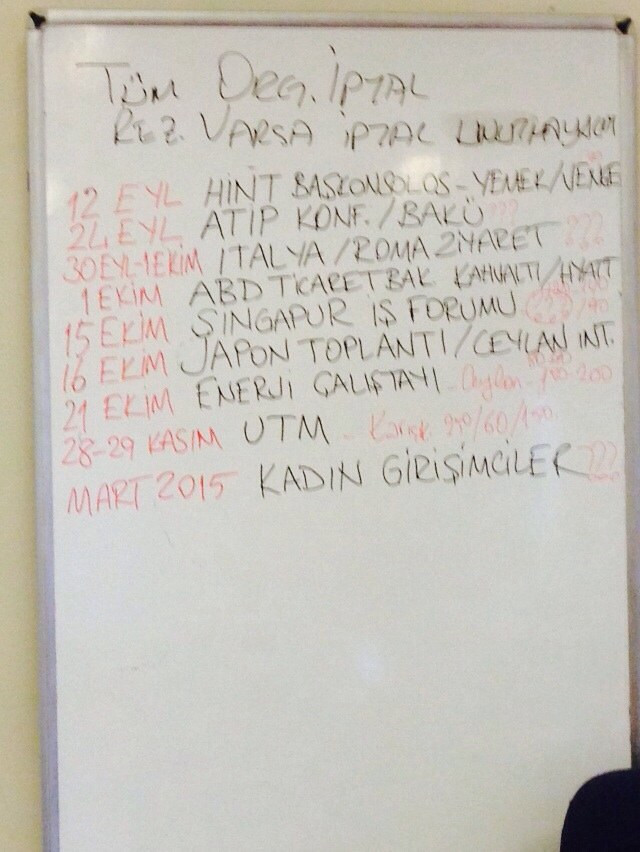 TÜM ORG. İPTAL
REZ. VARSA İPTAL UNUTMAYALIM
12 EYL HİNT BAŞKONSOLOS - YEMEK/VENGE
24 EYL ATIP KONF. / BAKÜ ???
30 EYL-1 EKİM İTALYA / ROMA ZİYARET ???
1 EKİM ABD TİCARET BAK KAHVALTI / HYATT
15 EKİM SİNGAPUR İŞ FORUMU
16 EKİM JAPON TOPLANTI / CEYLAN INT.
21 EKİM ENERJİ ÇALIŞTAYI - Ceylan - 200
28-29 KASIM UTM
MART 2015 KADIN GİRİŞİMCİLER ???